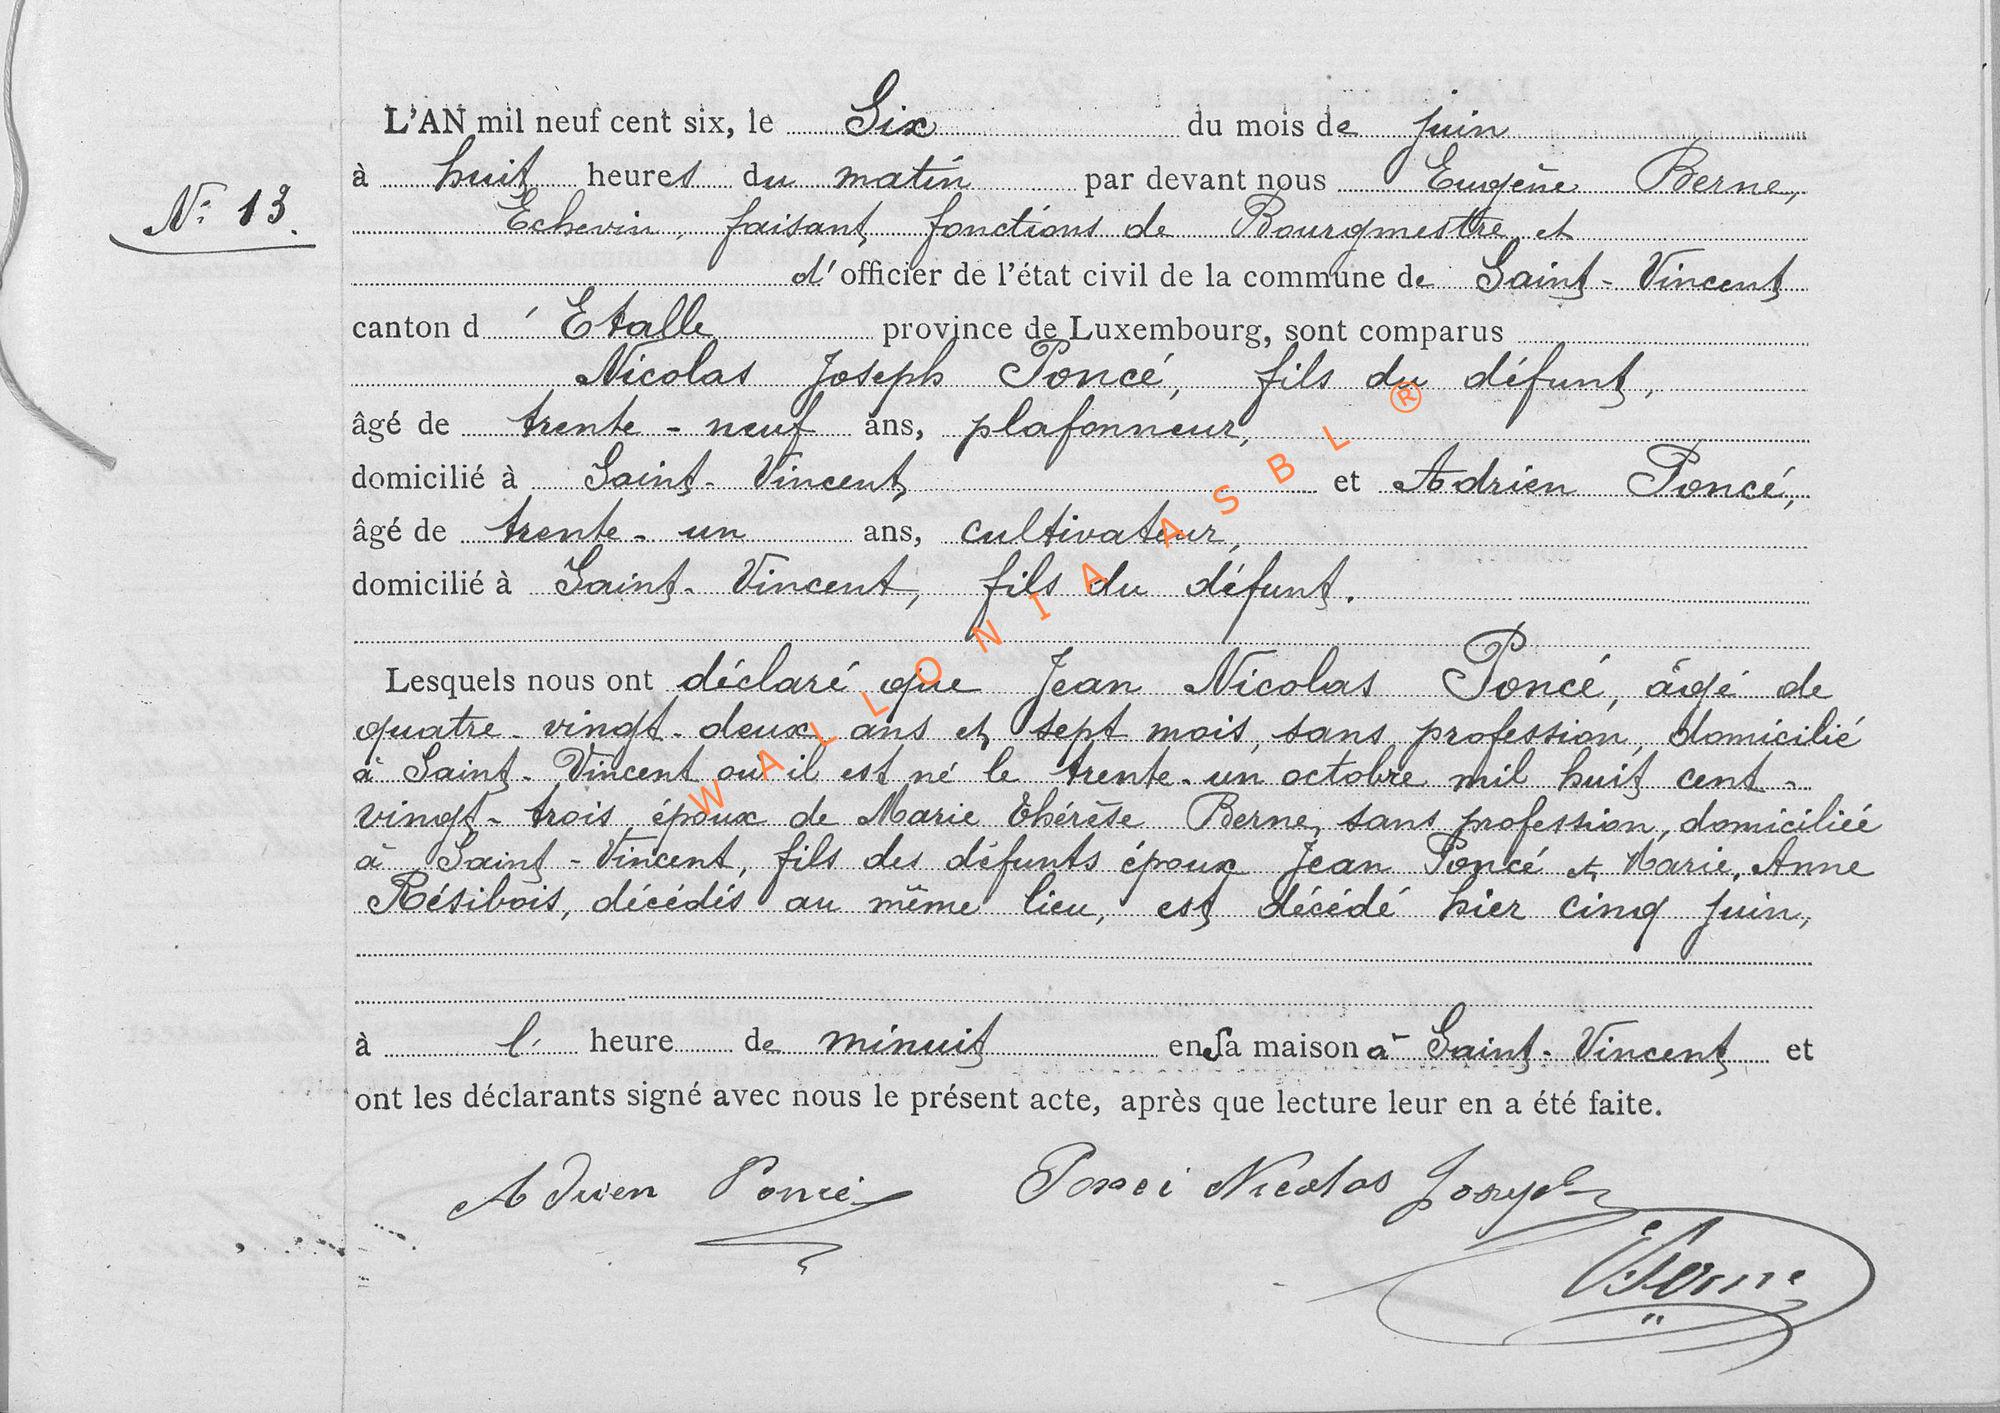 L'AN mil neuf cent six, le Six du mois de juin
à huit heures du matin par devant nous Eugène Berne,
N° 13.
Echevin, faisant fonctions de Bourgmestre et
d'officier de l'état civil de la commune de Saint-Vincent
canton d'Etalle province de Luxembourg, sont comparus
Nicolas Joseph Poncé, fils du défunt,
âgé de trente-neuf ans, plafonneur,
domicilié à Saint-Vincent, et Adrien Poncé,
âgé de trente-un ans, cultivateur,
domicilié à Saint-Vincent, fils du défunt.
Lesquels nous ont déclaré que Jean Nicolas Poncé, âgé de
quatre-vingt-deux ans et sept mois, sans profession, domicilié
à Saint-Vincent où il est né le trente-un octobre mil huit cent-
vingt-trois, époux de Marie Thérèse Berne, sans profession, domiciliée
à Saint-Vincent, fils des défunts époux Jean Poncé et Marie, Anne
Résibois, décédés au même lieu, est décédé hier cinq juin,
à l'heure de minuit en sa maison à Saint-Vincent et
ont les déclarants signé avec nous le présent acte, après que lecture leur en a été faite.
Adrien Poncé Poncé Nicolas Joseph
EBerne
WALLONIA ASBL ®